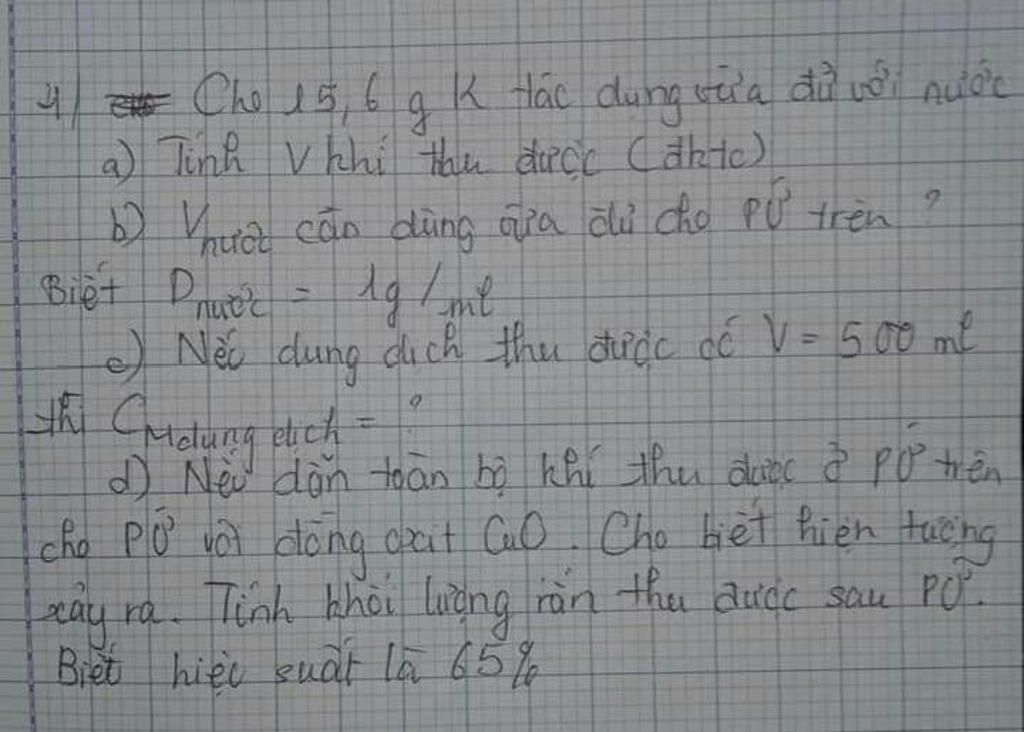 4) Cho 15,6 g K tác dụng vừa đủ với nước
a) Tính V khí thu được (đktc)
b) Vnước cần dùng vừa đủ cho PỨ trên ?
Biết Dnước = 1g/ml
c) Nếu dung dịch thu được có V = 500 ml
thì CM dung dịch = ?
d) Nếu dẫn toàn bộ khí thu được ở PỨ trên
cho PỨ với đồng oxit CuO. Cho biết hiện tượng
xảy ra. Tính khối lượng rắn thu được sau PỨ.
Biết hiệu suất là 65%